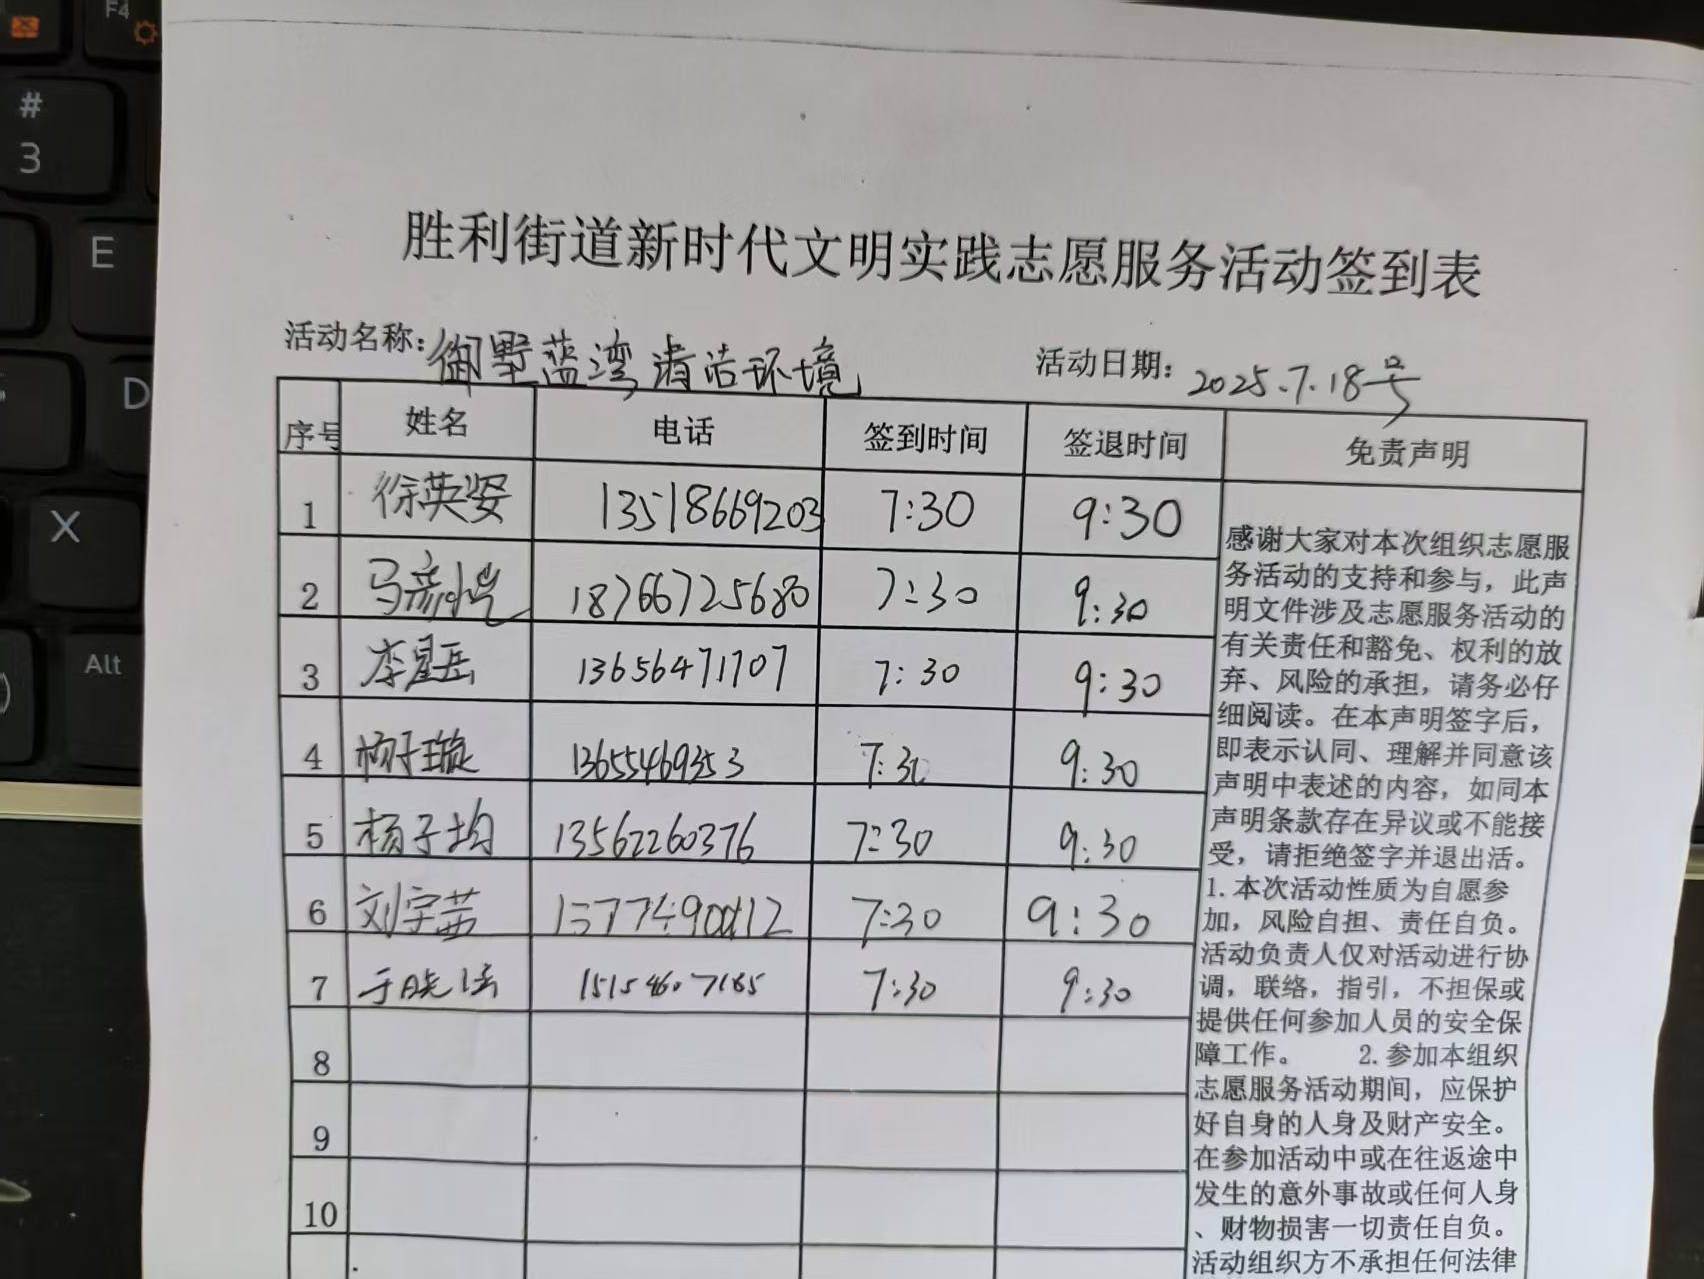 F4
#
3
E
D
X
Alt
胜利街道新时代文明实践志愿服务活动签到表
活动名称:御墅蓝湾清洁环境 活动日期: 2025.7.18号
序号 姓名 电话 签到时间 签退时间 免责声明
1 徐英姿 13518669203 7:30 9:30
2 马彦悦 18766725680 7:30 9:30
3 李星岳 13656471707 7:30 9:30
4 杨子璇 13655469353 7:30 9:30
5 杨子均 13562260376 7:30 9:30
6 刘宇茜 7:30 9:30
7 于晓 15154607165 7:30 9:30
8
9
10
感谢大家对本次组织志愿服
务活动的支持和参与，此声
明文件涉及志愿服务活动的
有关责任和豁免、权利的放
弃、风险的承担，请务必仔
细阅读。在本声明签字后，
即表示认同、理解并同意该
声明中表述的内容，如同本
声明条款存在异议或不能接
受，请拒绝签字并退出活。
1.本次活动性质为自愿参
加，风险自担、责任自负。
活动负责人仅对活动进行协
调，联络，指引，不担保或
提供任何参加人员的安全保
障工作。 2.参加本组织
志愿服务活动期间，应保护
好自身的人身及财产安全。
在参加活动中或在往返途中
发生的意外事故或任何人身
、财物损害一切责任自负。
活动组织方不承担任何法律